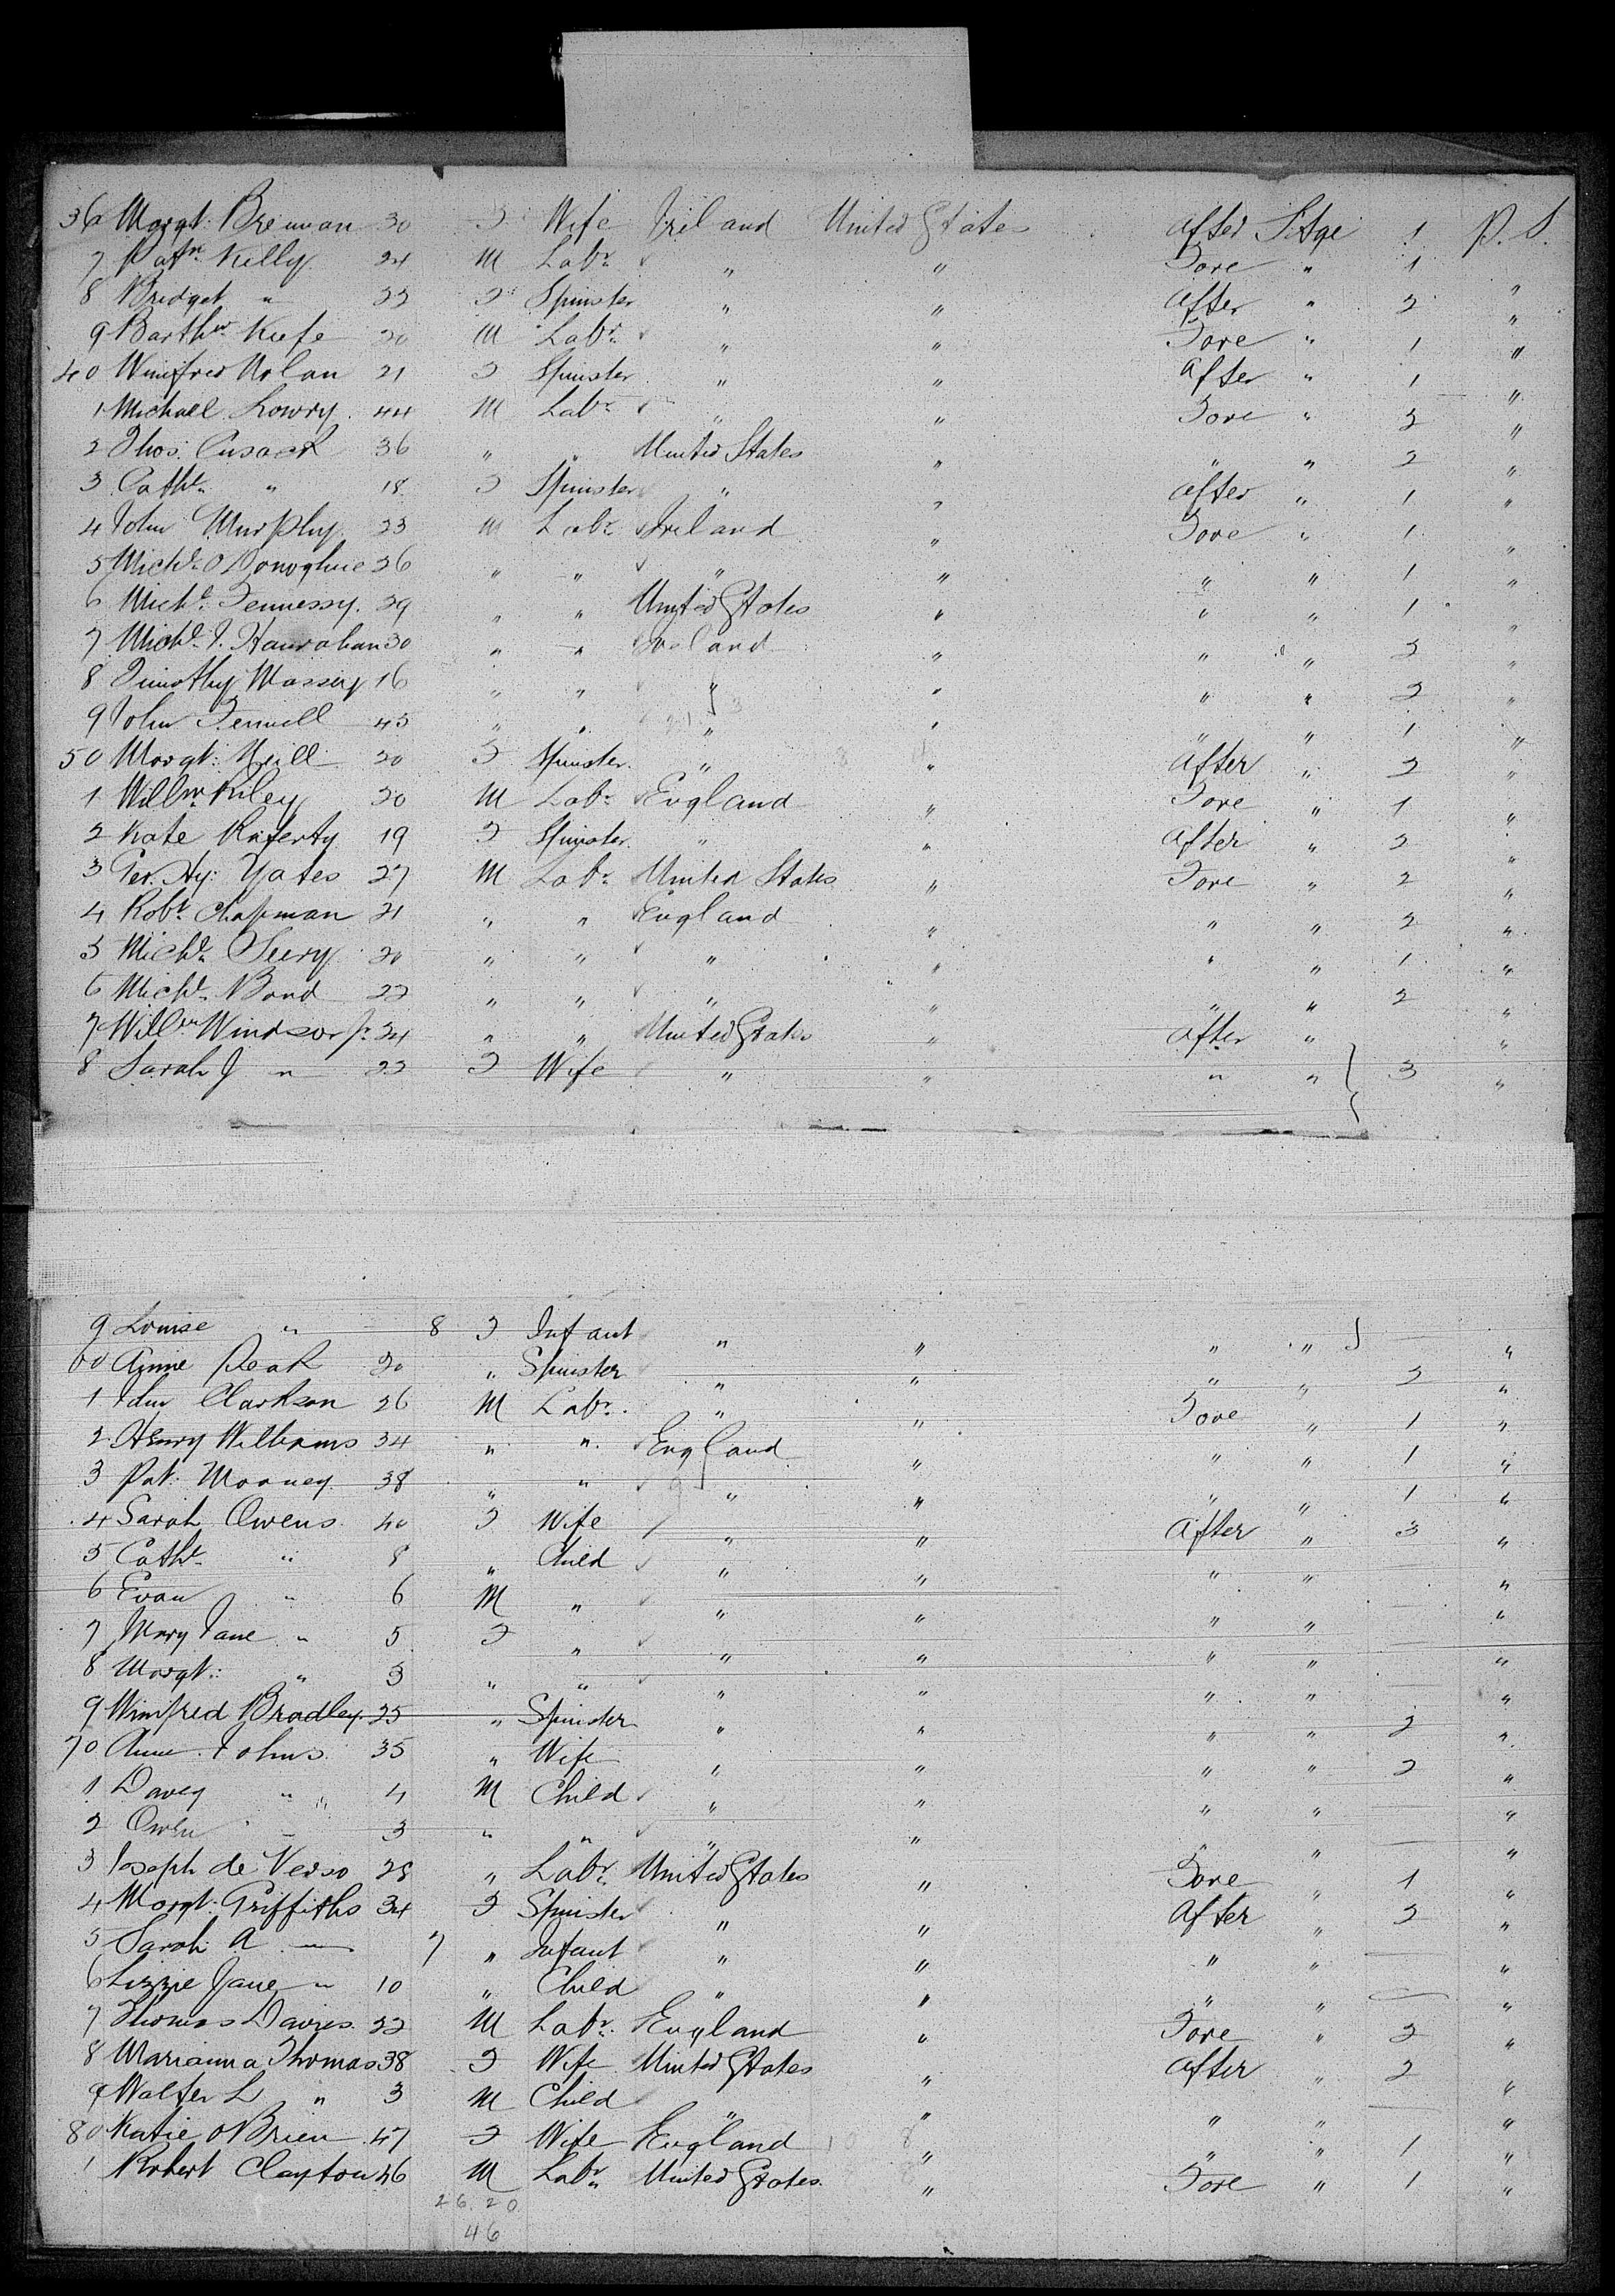 36 Margt. Brennan 30 F Wife Ireland United States After Sttge 1 P. S.
7 Patk Kelly 24 M Labr " " Fore " 1 "
8 Bridget " 22 F Spinster " " After " 2 "
9 Barthw Keefe 20 M Labr " " Fore " 1 "
40 Winifred Nolan 21 F Spinster " " After " 1 "
1 Michael Lowry 44 M Labr " " Fore " 2 "
2 Thos. Cusack 36 " " United States " " " 2 "
3 Cathe " 18 F Spinster " " After " 1 "
4 John Murphy 23 M Labr Ireland " Fore " 1 "
5 Michl O'Donoghue 26 " " " " " " 1 "
6 Michl Fennessy 29 " " United States " " " 1 "
7 Michl J. Hanrahan 30 " " Ireland " " " 2 "
8 Timothy Massey 16 " " " " " " 2 "
9 John Fennell 45 " " " " " " 1 "
50 Margt. Neill 20 F Spinster " " After " 2 "
1 Willm Riley 20 M Labr England " Fore " 1 "
2 Kate Raferty 19 F Spinster " " After " 2 "
3 Hy. Yates 27 M Labr United States " Fore " 2 "
4 Robt Chapman 21 " " England " " " 2 "
5 Michl Seery 20 " " " " " " 1 "
6 Michl Bond 22 " " " " " " 2 "
7 Willm Windsor 24 " " United States " After "
8 Sarah J " 22 F Wife " " " " } 3 "
9 Louise " 8 F Infant " " " " } — "
60 Annie Peak 20 " Spinster " " " " 2 "
1 John Clarkson 26 M Labr. " " Fore " 1 "
2 Henry Williams 34 " " England " " " 1 "
3 Pat. Mooney 38 " " " " " " 1 "
4 Sarah Owens 40 F Wife " " After " 3 "
5 Cathe " 8 " Child " " " " — "
6 Evan " 6 M " " " " " — "
7 Mary Jane " 5 F " " " " " — "
8 Margt. " 3 " " " " " " — "
9 Winifred Bradley 25 " Spinster " " " " 2 "
70 Anne Johns 35 " Wife " " " " 2 "
1 Davey " 4 M Child " " " " — "
2 Owen " 3 " " " " " " — "
3 Joseph de Verso 28 " Labr United States " Fore " 1 "
4 Margt. Griffiths 34 F Spinster " " After " 2 "
5 Sarah A " 7 " Infant " " " " — "
6 Lizzie Jane " 10 " Child " " " " — "
7 Thomas Davies 22 M Labr. England " Fore " 2 "
8 Marianna Thomas 38 F Wife United States " After " 2 "
9 Walter L " 3 M Child " " " " — "
80 Katie O'Brien 47 F Wife England " " " 1 "
1 Robert Clayton 46 M Labr United States " Fore " 1 "
26.20
46